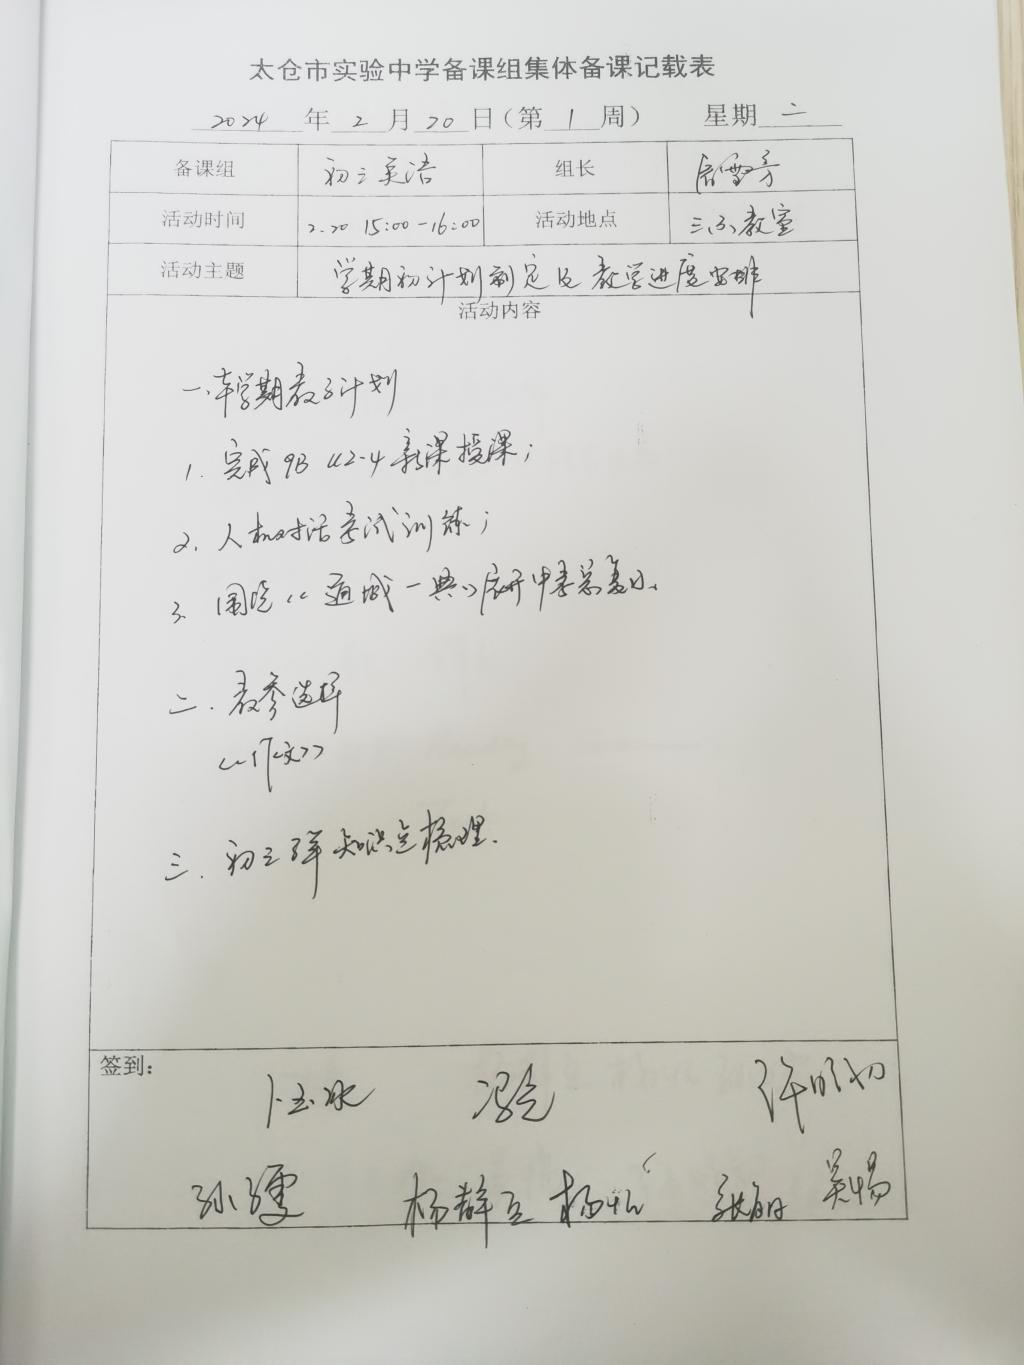 太仓市实验中学备课组集体备课记载表
2024 年 2 月 20 日（第 1 周） 星期 二
备课组 初三英语 组长
活动时间 2.20 15:00-16:00 活动地点 教室
活动主题 学期初计划制定及教学进度安排
活动内容
一.本学期教学计划
1. 完成9B U2-4 新课授课；
2. 人机对话考试训练；
3. 围绕《通城一典》展开中考总复习.
二. 教参选择
《作文》
三. 初三 知识点梳理.
签到：
卜玉冰 许明初
孙 杨 杨 吴惕